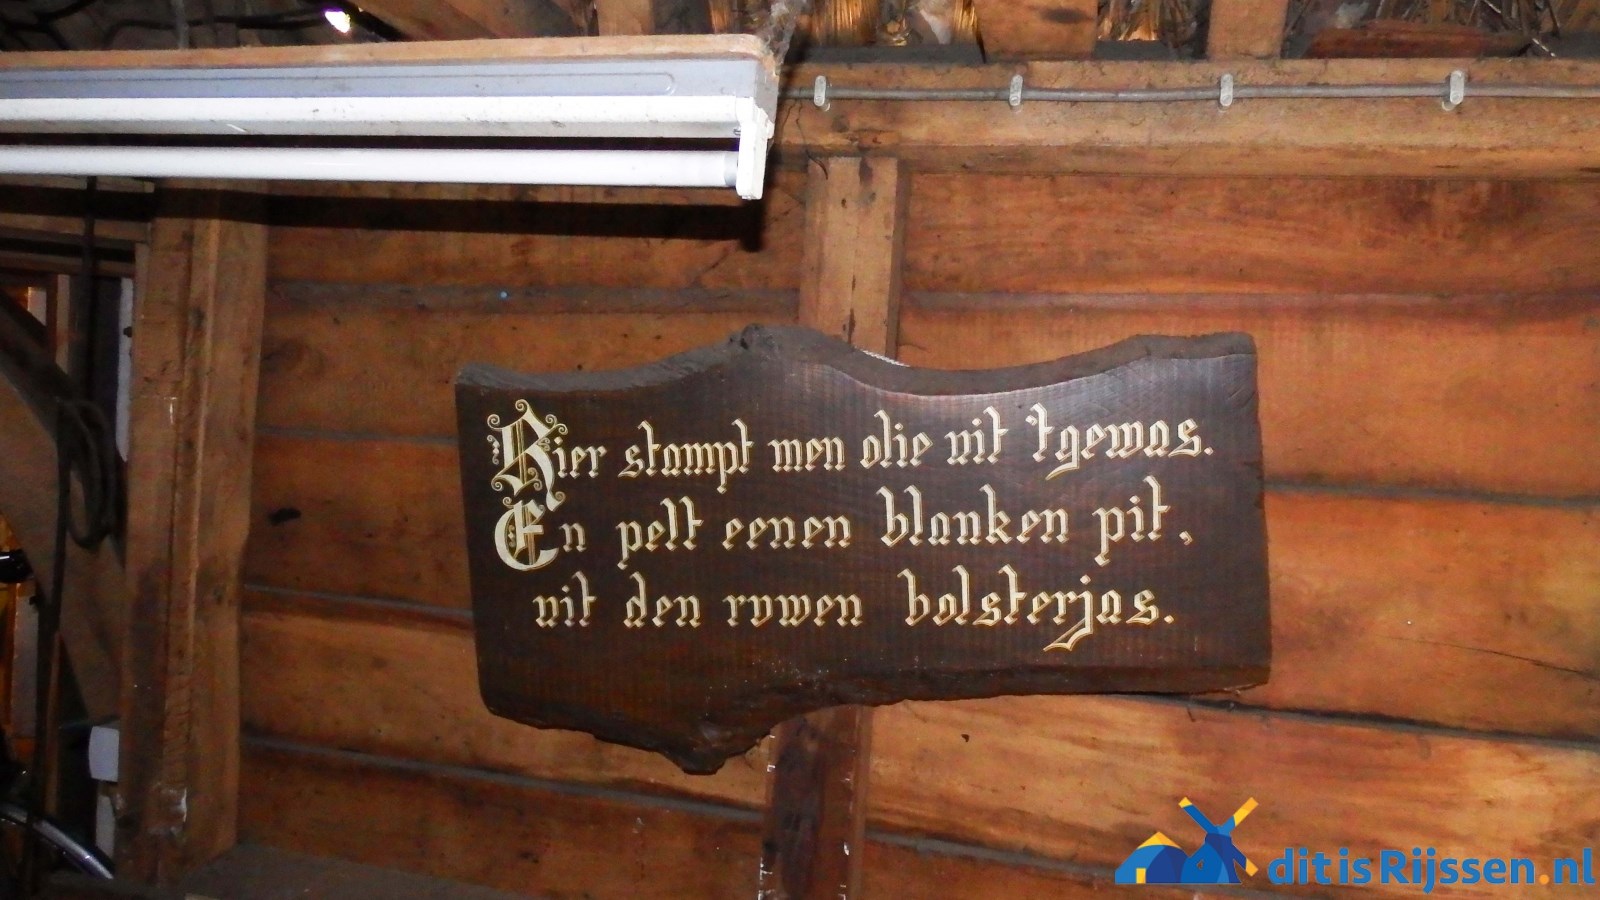 Hier stampt men olie uit 'tgewas.
En pelt eenen blanken pit,
uit den ruwen bolsterjas.
ditisRijssen.nl